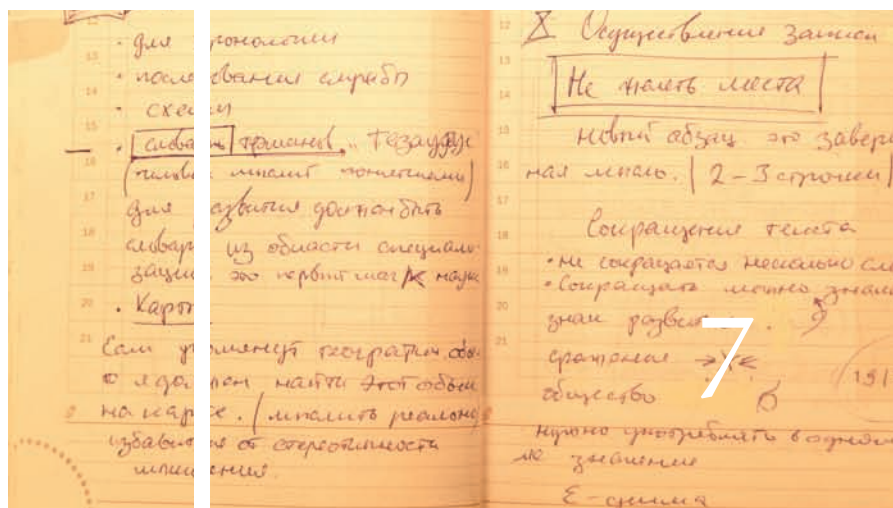 • для хронологии
• последования службы
• схемы
• словарь терминов „ Тезаурус
(человек мыслит понятиями)
для развития должен быть
словарь из области специали-
зации. это первый шаг к науке
• Карты
Если упомянут географич. объект
то я должен найти этот объект
на карте. (мыслить реально)
избавиться от стереотипности
мышления.
X Осуществление записи
Не жалеть места
новый абзац это завершен
ная мысль. (2-3 строчки)
Сокращения текста
• не сокращается несколько сл
• Сокращать можно знаком
знак развития .
сражения →←
общество
7
191
нужно употреблять в одном
значение
Σ-сумма